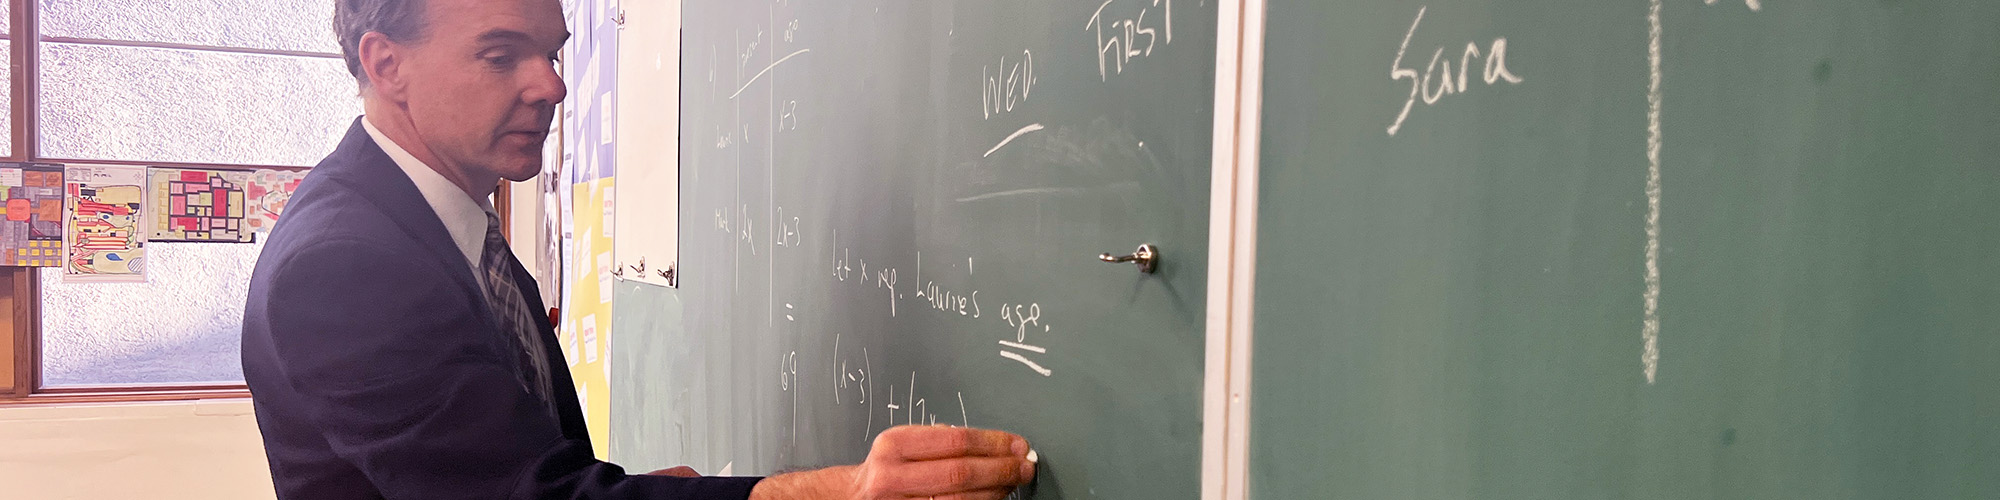 age
Laurie x x-3
Mark 2x 2x-3
=
69 (x-3) + (2x
Let x rep. Laurie's age.
WED.
FIRST
Sara